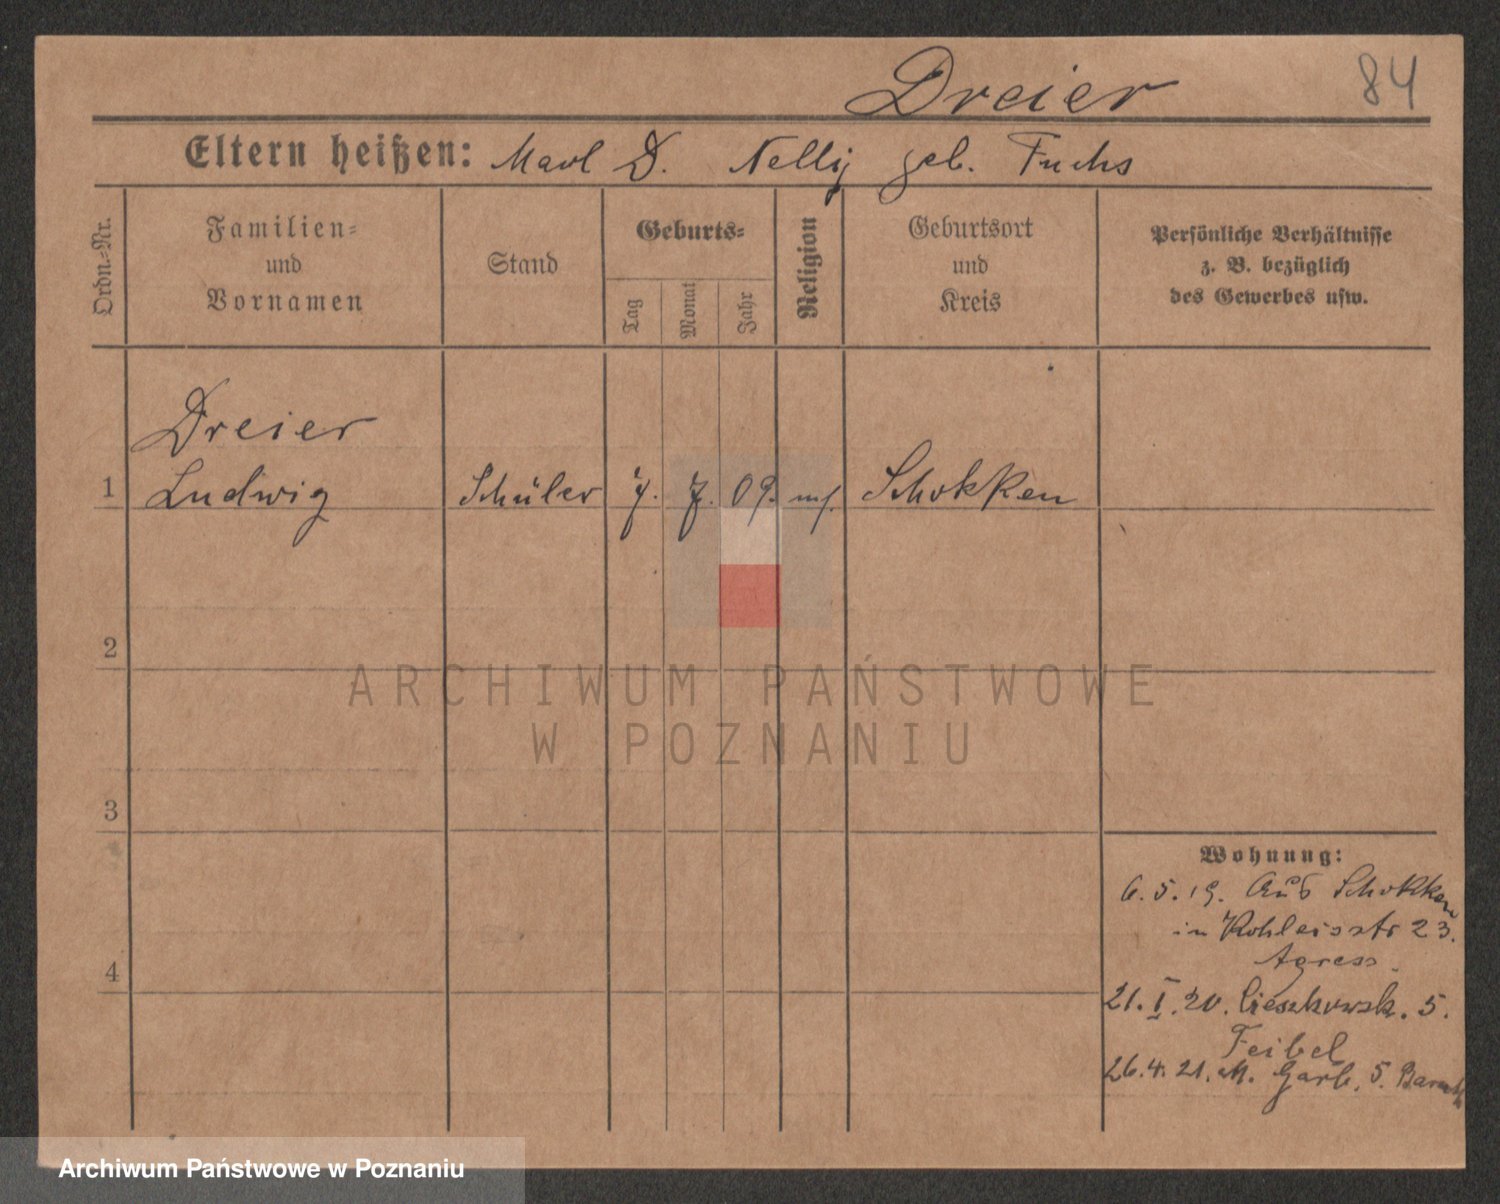 Dreier
84
Eltern heißen: D. Nelly geb. Fuchs
Ordn.-Nr.
Familien-
und
Vornamen
Stand
Geburts-
Tag
Monat
Jahr
Religion
Geburtsort
und
Kreis
Persönliche Verhältnisse
z. B. bezüglich
des Gewerbes usw.
Dreier
1 Ludwig Schüler 7. 7. 09. Schokken
2
3
4
Wohnung:
6.5.19. Aus Schokken
in 23.
21.I.20. Cieszkowsk. 5.
Feibel
26.4.21. M. Garb. 5.
ARCHIWUM PAŃSTWOWE
W POZNANIU
Archiwum Państwowe w Poznaniu